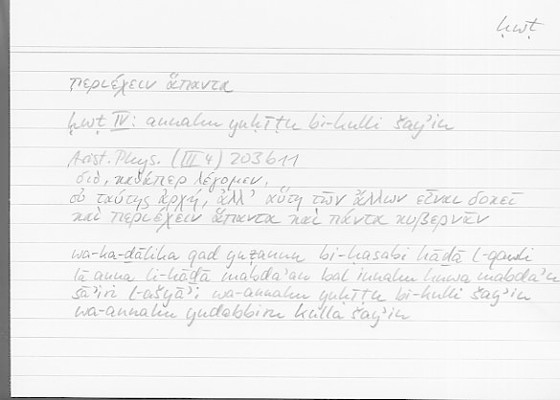 ḥwṭ
περιέχειν ἅπαντα
ḥwṭ IV: annahu yuḥīṭu bi-kulli šayʾin
Arist. Phys. (III 4) 203b11
διό, καθάπερ λέγομεν,
οὐ ταύτης ἀρχή, ἀλλ’ αὕτη τῶν ἄλλων εἶναι δοκεῖ
καὶ περιέχειν ἅπαντα καὶ πάντα κυβερνᾶν
wa-ka-ḏālika qad yuẓannu bi-ḥasabi hāḏā l-qauli
lā anna li-hāḏā mabdaʾan bal innahu huwa mabdaʾu
sāʾiri l-ašyāʾi wa-annahu yuḥīṭu bi-kulli šayʾin
wa-annahu yudabbiru kulla šayʾin